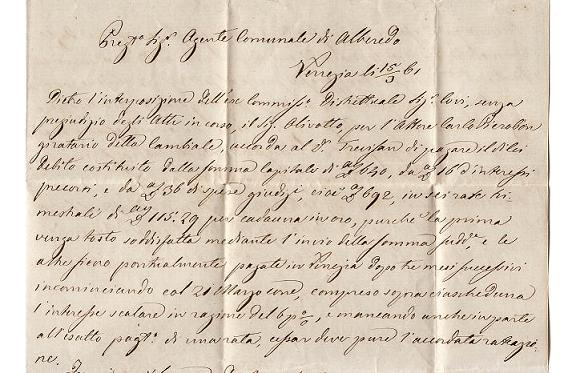 Prezo. Sigr. Agente Comunale di Alberedo
Venezia li 15/3 61
Dietro l'interposizione dell'exe Commisso. Distrettuale Sigr. Covi, senza
pregiudizio degli Atti in corso, il Sigr. Olivotto, per l'Attore Carlo Pierobon
giratario della Cambiale, accorda al Trevisan di pagare il di lei
debito costituito dalla somma Capitale di 640, da 16 d'interessi
precorsi, e da 36 di spese giudizi, cioè 692, in sei rate tri-
mestrali di 115:29 per cadauna in oro, purchè la prima
venga tosto soddisfatta mediante l'invio della somma sudda. e le
altre sieno pontualmente pagate in Venezia dopo tre mesi successivi
incominciando col 21 Marzo corre, compreso sopra ciascheduna
l'interesse scalare in ragione del 6 p%, e mancando anche in parte
all'esatto pagto. di una rata, cessar deve pure l'accordata ratazio-
ne.